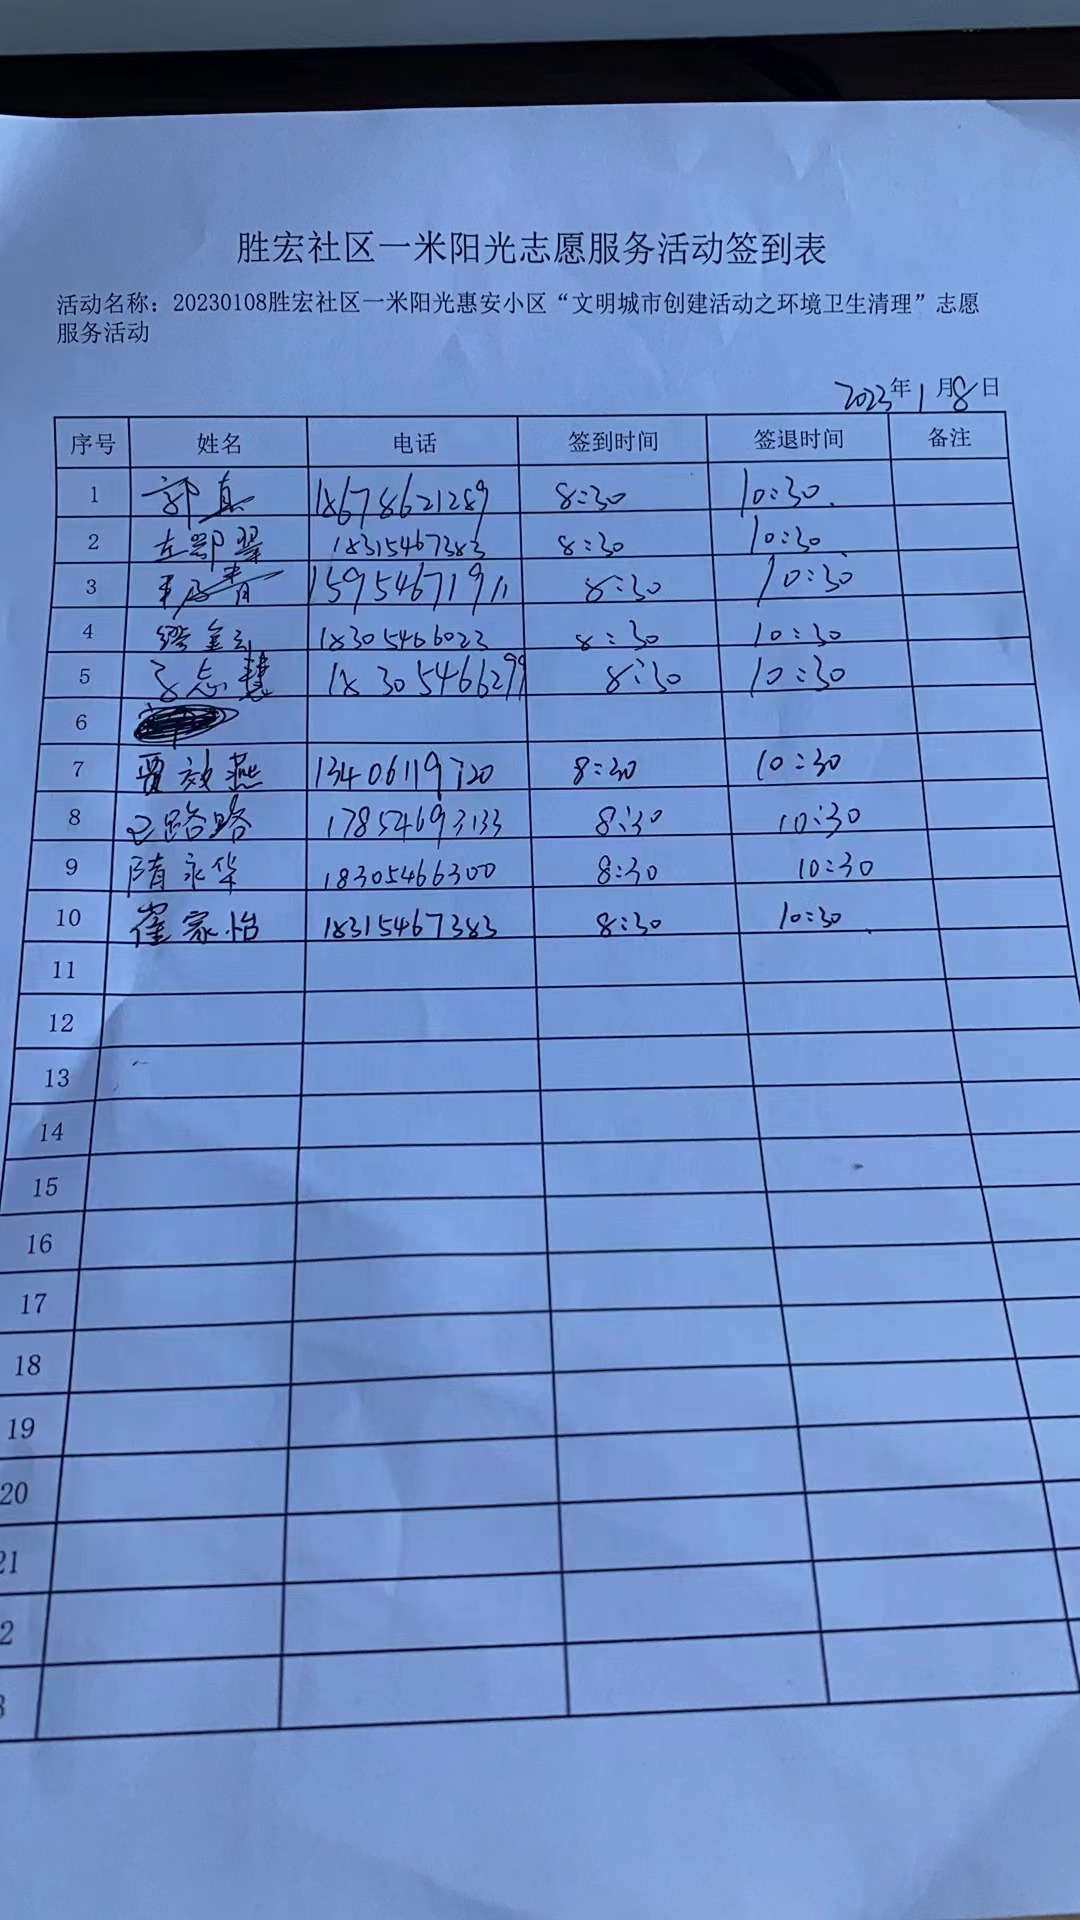 胜宏社区一米阳光志愿服务活动签到表
活动名称：20230108胜宏社区一米阳光惠安小区“文明城市创建活动之环境卫生清理”志愿
服务活动
2023年1月8日
序号 姓名 电话 签到时间 签退时间 备注
1 郭真 18678621289 8:30 10:30
2 18315467383 8:30 10:30
3 15954671911 8:30 10:30
4 18305466023 8:30 10:30
5 志慧 18305466299 8:30 10:30
6
7 贾效燕 13406119720 8:30 10:30
8 路路 17854693133 8:30 10:30
9 隋永华 18305466300 8:30 10:30
10 崔家怡 18315467383 8:30 10:30
11
12
13
14
15
16
17
18
19
20
21
2
3